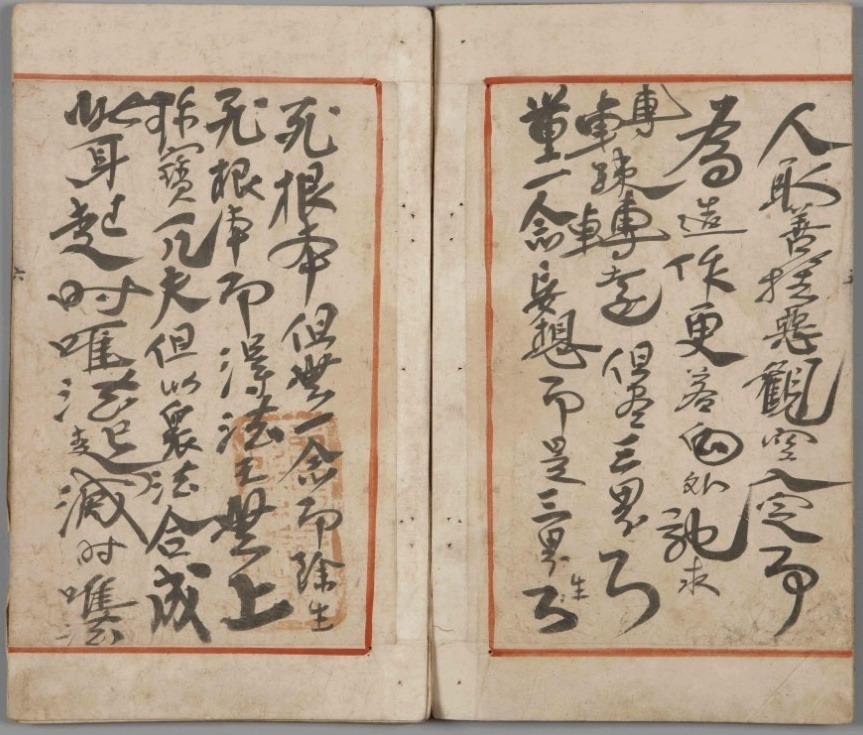 人取善捨惡觀空入定即
為造作更若向外馳求
轉疎轉遠但盡三界
量一念妄想即是三界生
死根本但無一念即除生
死根本即得法王無上
珍寶凡夫但以眾法合成
此耳起時唯法起滅時唯法